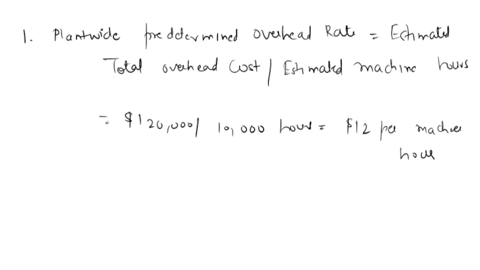 1. Plantwide predetermined overhead Rate = Estimated
Total overhead Cost / Estimated machine hours
= $120,000/ 10,000 hours = $12 per machine
hour